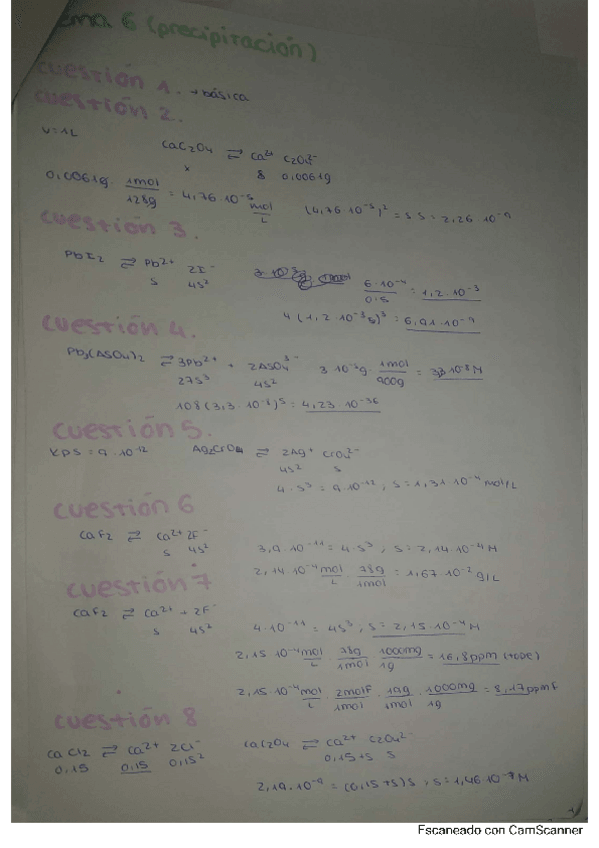 ema 6 (precipitación)
cuestión 1. → básica
cuestión 2.
V=1L
CaC2O4 ⇌ Ca2+ C2O42-
x s 0,0061g
0,0061g · 1mol/128g = 4,76·10-5 mol/L (4,76·10-5)2 = s s = 2,26·10-9
cuestión 3.
PbI2 ⇌ Pb2+ 2I-
s 4s2
6·10-4/0,5 = 1,2·10-3
4(1,2·10-3s)3 = 6,91·10-9
cuestión 4.
Pb3(ASO4)2 ⇌ 3Pb2+ + 2ASO43- 3·10-5g · 1mol/900g = 3,3·10-8M
27s3 4s2
108(3,3·10-8)5 = 4,23·10-36
cuestión 5.
KPS = 9·10-12 Ag2CrO4 ⇌ 2Ag+ CrO42-
4s2 s
4·s3 = 9·10-12, s = 1,31·10-4 mol/L
cuestión 6
CaF2 ⇌ Ca2+ 2F-
s 4s2 3,9·10-11 = 4·s3, s = 2,14·10-4M
2,14·10-4 mol/L · 78g/1mol = 1,67·10-2 g/L
cuestión 7
CaF2 ⇌ Ca2+ + 2F-
s 4s2 4·10-11 = 4s3, s = 2,15·10-4M
2,15·10-4 mol/L · 78g/1mol · 1000mg/1g = 16,8ppm
2,15·10-4 mol/L · 2molF/1mol · 19g/1mol · 1000mg/1g = 8,17ppmF
cuestión 8
CaCl2 ⇌ Ca2+ 2Cl- CaC2O4 ⇌ Ca2+ C2O42-
0,15 0,15 0,152 0,15+s s
2,19·10-9 = (0,15+s)s, s = 1,46·10-8M
Escaneado con CamScanner